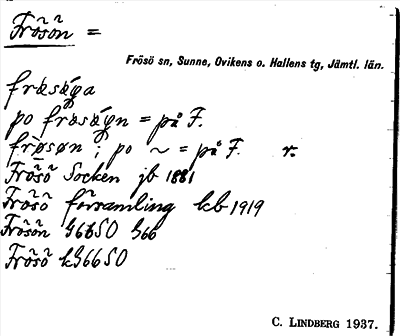 Frösön =
Frösö sn, Sunne, Ovikens o. Hallens tg, Jämtl. län.
frøsøga
po frøsøgn = på F.
frøsøn; po ~ = på F. r.
Frösö Socken jb 1881
Frösö församling kb 1919
Frösön G66SO G66
Frösö kG66SO
C. LINDBERG 1937.